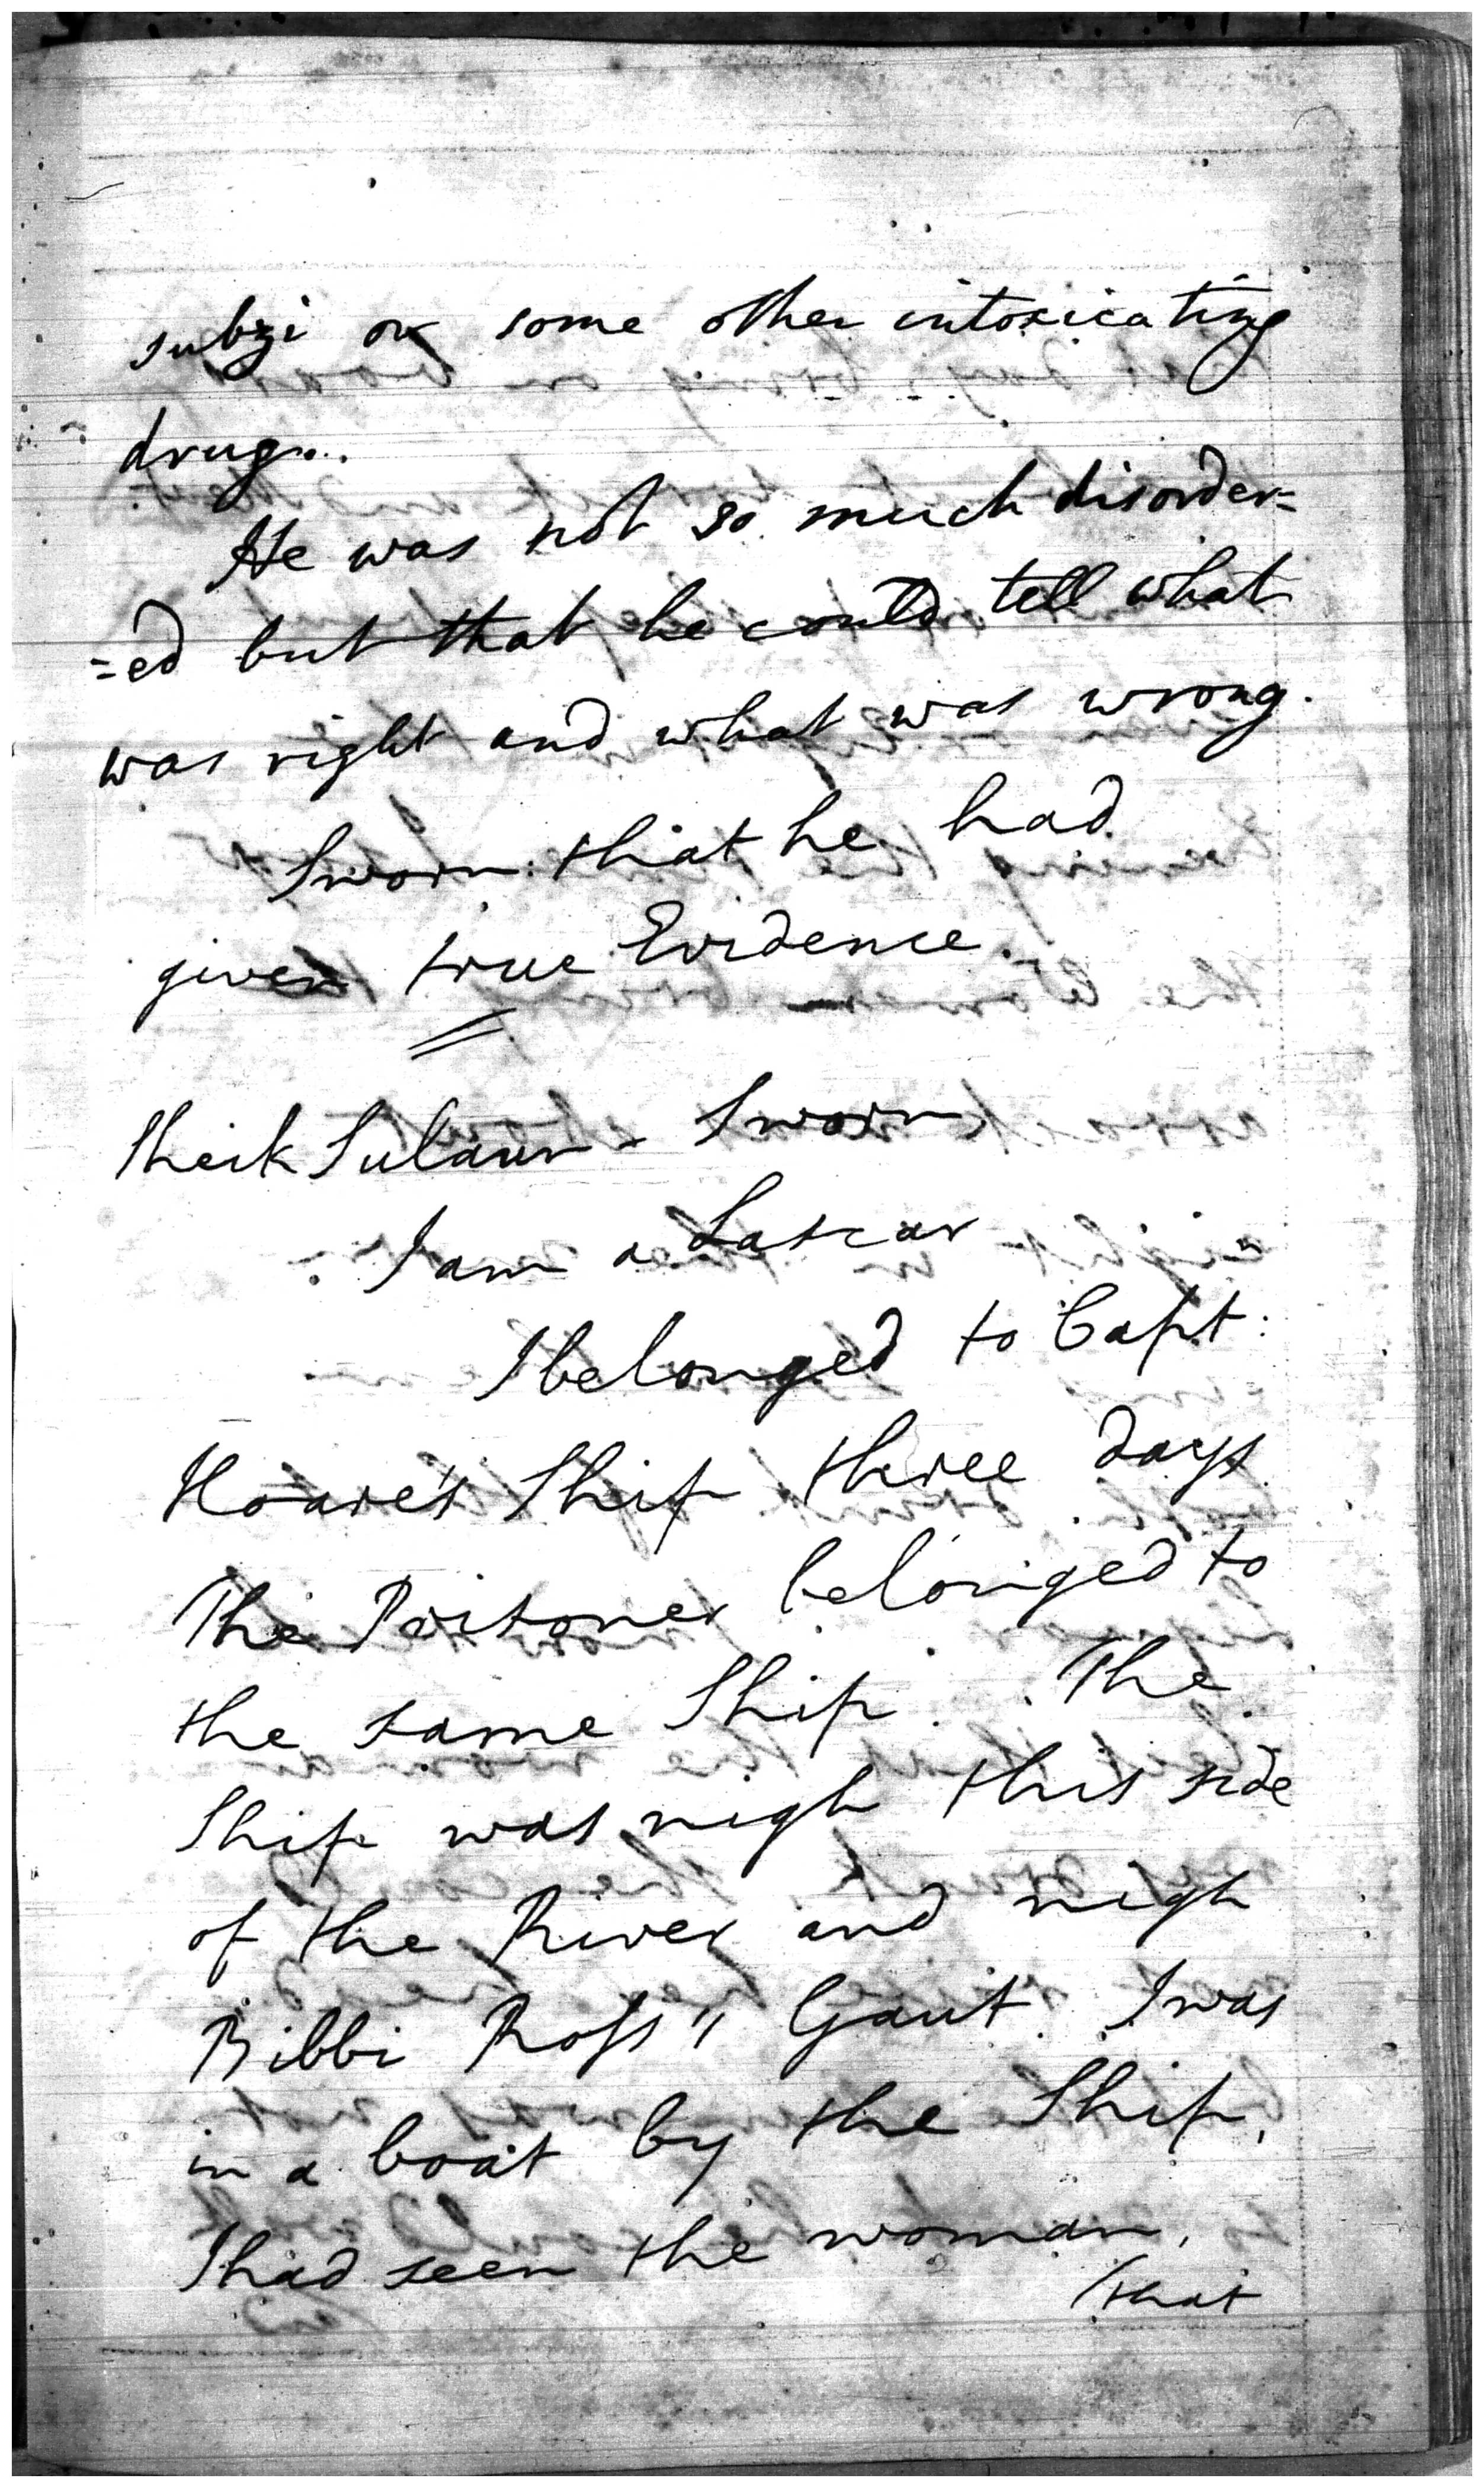 subzi or some other intoxicating
drug...
He was not so much disorder=
=ed but that he could tell what
was right and what was wrong.
Sworn that he had
given true Evidence.
Sheik - Sworn
I am a Lascar
I belonged to Capt:
Hoare's Ship three days
The Prisoner belonged to
the same Ship. The
Ship was nigh this side
of the River and nigh
Bibbi Ross's Gaut. I was
in a boat by the Ship,
I had seen the woman,
(that